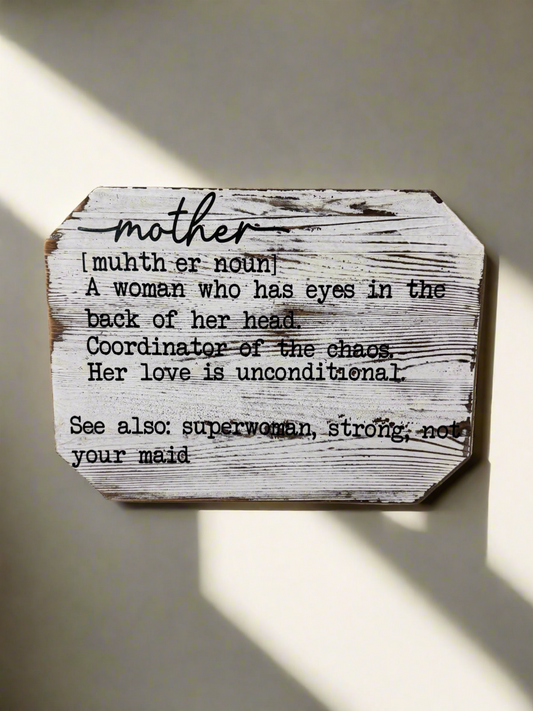 mother
[muhth er noun]
A woman who has eyes in the
back of her head.
Coordinator of the chaos.
Her love is unconditional.
See also: superwoman, strong, not
your maid